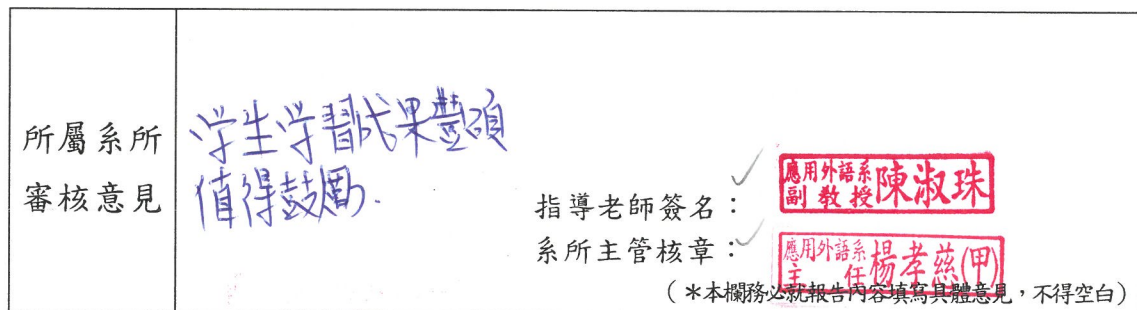 所屬系所
審核意見
学生学習成果豐碩
值得鼓勵.
指導老師簽名：
應用外語系
副教授陳淑珠
系所主管核章：
應用外語系
主任楊孝慈(甲)
（＊本欄務必就報告內容填寫具體意見，不得空白）